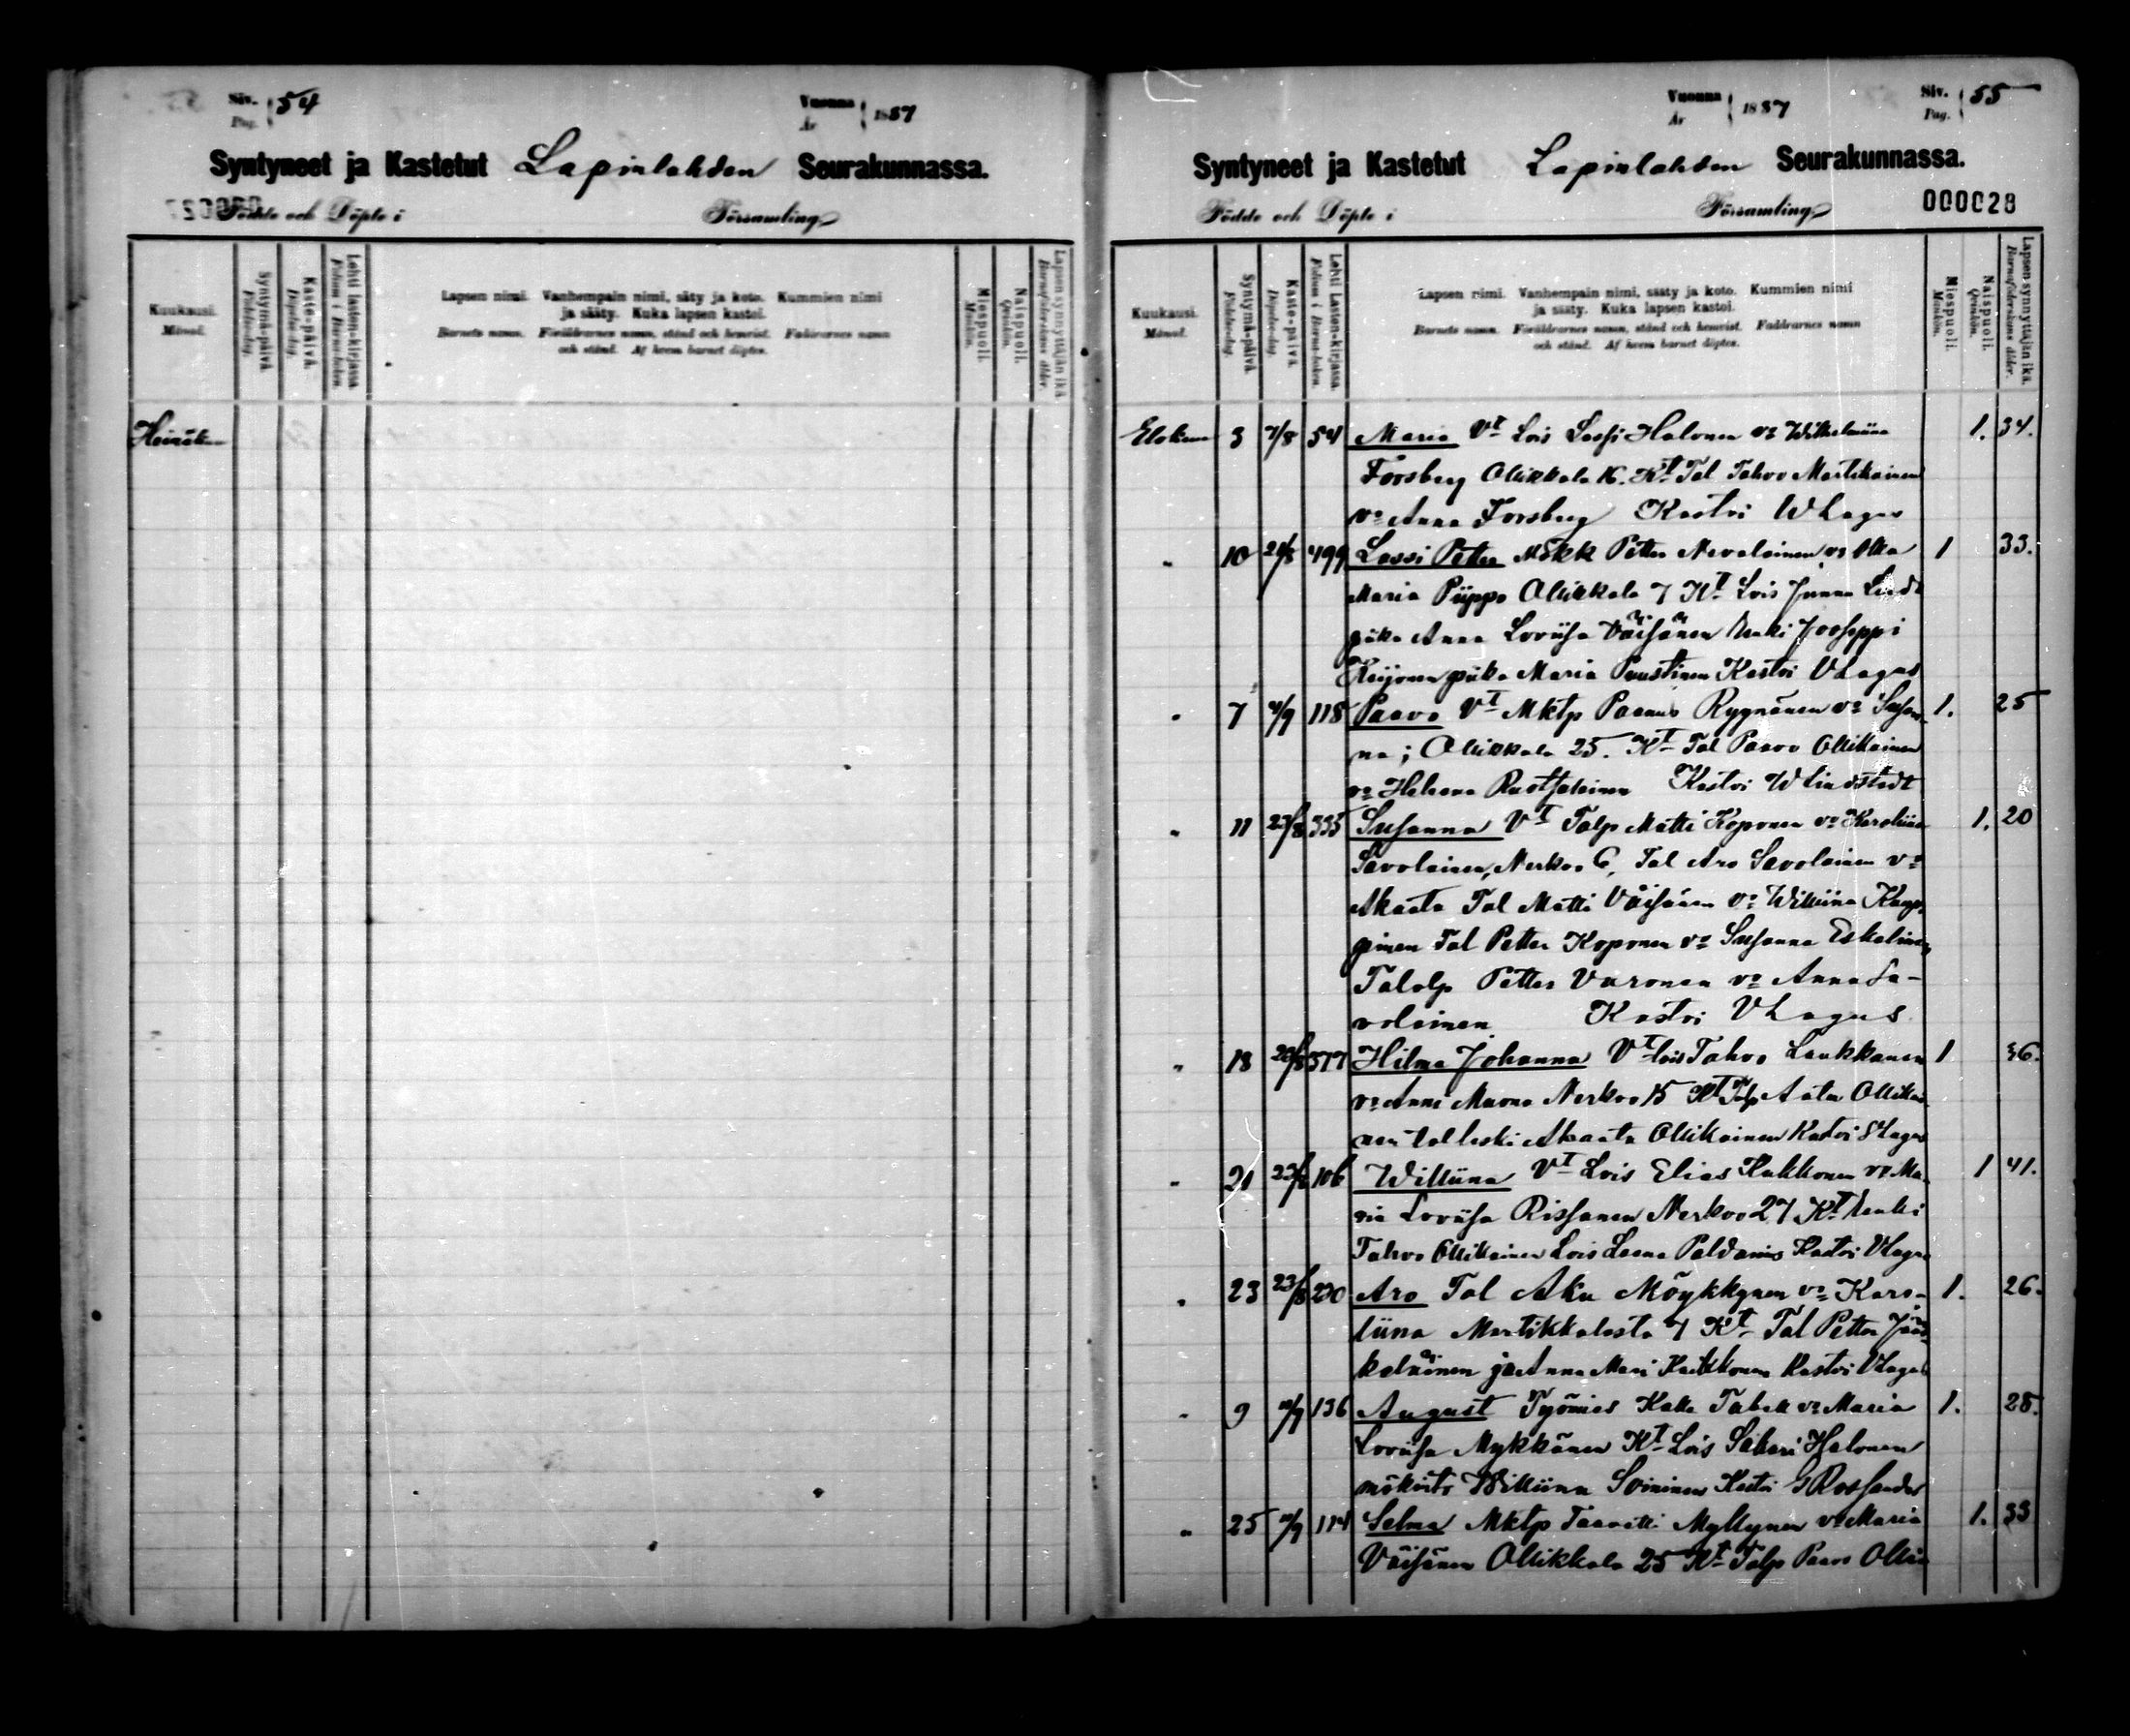 Siv. Pag. 54
Vuonna År 1887
Syntyneet ja Kastetut Lapinlahden Seurakunnassa.
Födde och Döpte i Församling
Kuukausi. Månad.
Syntymä-päivä. Födelse-dag.
Kaste-päivä. Döpelse-dag.
Lehti lasten-kirjassa. Folium i Barna-boken.
Lapsen nimi. Vanhempain nimi, sääty ja koto. Kummien nimi
ja sääty. Kuka lapsen kastoi.
Barnets namn. Föräldrarnes namn, stånd och hemvist. Faddrarnes namn
och stånd. Af hvem barnet döptes.
Miespuoli. Mankön.
Naispuoli. Qvinkön.
Lapsen synnyttäjän ikä. Barnaföderskans ålder.
Heinäk
Vuonna År 1887
Siv. Pag. 55
Syntyneet ja Kastetut Lapinlahden Seurakunnassa.
Födde och Döpte i Församling
000028
Kuukausi. Månad.
Syntymä-päivä. Födelse-dag.
Kaste-päivä. Döpelse-dag.
Lehti Lasten-kirjassa. Folium i Barna-boken.
Lapsen nimi. Vanhempain nimi, sääty ja koto. Kummien nimi
ja sääty. Kuka lapsen kastoi.
Barnets namn. Föräldrarnes namn, stånd och hemvist. Faddrarnes namn
och stånd. Af hvem barnet döptes.
Miespuoli. Mankön.
Naispuoli. Qvinkön.
Lapsen synnyttäjän ikä. Barnaföderskans ålder.
Elokuu 3 7/8 54 Maria Vt Lois Lassi Halonen vo Wilhelmiina 1. 34.
Forsberg Ollikkala 16. Kt Tal Tahvo Martikainen
vo Anna Forsberg Kastoi W Lagus
" 10 21/8 499 Lassi Petter Mökk Petter Nevalainen vo Ulla 1 33.
Maria Piippo Ollikkala 7 Kt Lois
piika Anna Loviisa Väisänen renki Jooseppi
Keijonen piika Maria Puustinen Kastoi V Lagus
" 7 4/9 118 Paavo Vt Mktp Rasmus Ryynänen vo Susan- 1. 25
na; Ollikkala 25. Kt Tal Paavo Ollikainen
vo Helena Ruotsalainen Kastoi W Lindstedt
" 11 335 Susanna Vt Talp Matti Koponen vo Karoliina 1. 20
Savolainen, Nerkoo 6, Tal Aro Savolainen vo
Akaata Tal Matti Väisänen vo Williina Kaup-
pinen Tal Petter Koponen vo Susanna Eskelinen
Talolp Petter Varonen vo Anna Sa-
volainen Kastoi V Lagus
" 18 377 Hilma Johanna Vt lois Tahvo Laukkanen 1 36.
vo Anni Nerkoo 15 Kt Talp Aatu Ollikai-
nen tal leski Akaata Ollikainen Kastoi V Lagus
" 21 106 Williina Vt Lois Elias Kukkonen vo Ma- 1 41.
ria Loviisa Rissanen Nerkoo 27 Kt renki
Tahvo Ollikainen Lois Leena Paldanius Kastoi V Lagus
" 23 23/8 230 Aro Tal Aku Möykkynen vo Karo- 1. 26.
liina Martikkalasta 7 Kt Tal Petter Jääs-
keläinen ja Anna Mari Kastoi V Lagus
" 9 136 August Työmies Kalle Tabell vo Maria 1. 28.
Loviisa Mykkänen Kt Lois Sakari Halonen
Williina Soininen Kastoi G Rossander
" 25 114 Selma Mktp Taavetti Myllynen vo Maria 1. 33
Väisänen Ollikkala 25 Kt Talp Paavo Olli